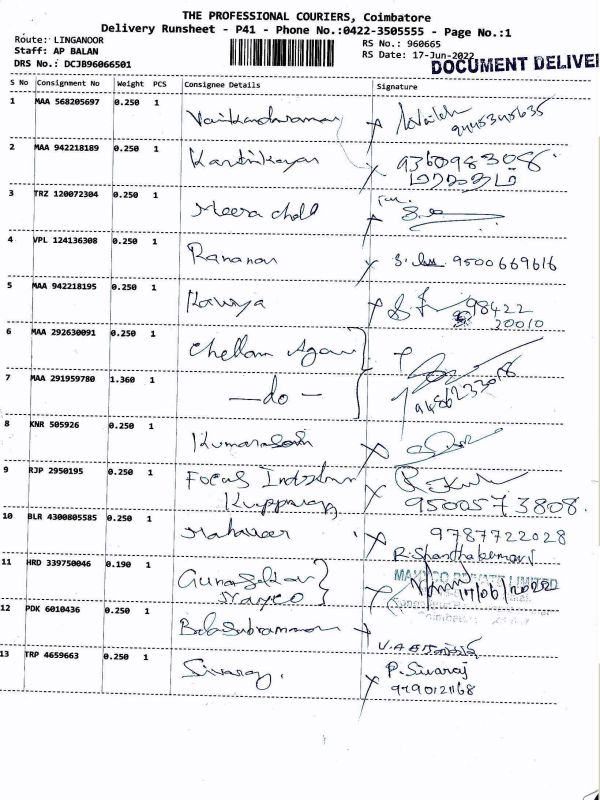 THE PROFESSIONAL COURIERS, Coimbatore
Delivery Runsheet - P41 - Phone No.:0422-3505555 - Page No.:1
Route: LINGANOOR
RS No.: 960665
Staff: AP BALAN
RS Date: 17-Jun-2022
DRS No.: DCJB96066501
DOCUMENT DELIVE
S No Consignment No Weight PCS Consignee Details Signature
1 MAA 568205697 0.250 1
9445345635
2 MAA 942218189 0.250 1 Karthikeyan 9360983088
3 TRZ 120072304 0.250 1 Meera
4 VPL 124136308 0.250 1 Ramanan 9500669616
5 MAA 942218195 0.250 1 Kavya 98422
20010
6 MAA 292630091 0.250 1 Chellam Agen
7 MAA 291959780 1.360 1 -do-
8 KNR 505926 0.250 1
9 RJP 2950195 0.250 1 Focus
9500573808.
10 BLR 4300805585 0.250 1 Mahaveer 9787722028
R. Shanthakumari
11 HRD 339750046 0.190 1 Gunasekar
MAXYCO PRIVATE LIMITED
Mayco 17/06/2022
12 PDK 6010436 0.250 1 Balasubramanian
13 TRP 4659663 0.250 1 Sivaraj. P. Sivaraj
9790121168